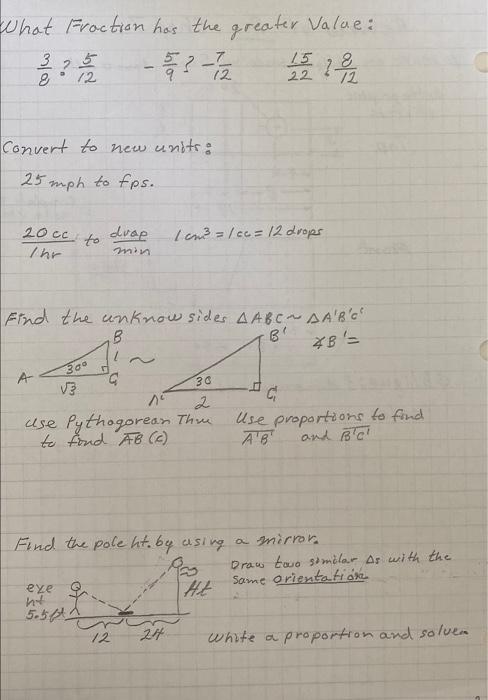 What Fraction has the greater Value:
3/8 ? 5/12   - 5/9 ? - 7/12   15/22 ? 8/12
Convert to new units:
25 mph to fps.
20cc/1hr to drop/min   1 cm³ = 1cc = 12 drops
Find the unknow sides △ABC ~ △A'B'C'
B   B'   ∡B' =
30°   1   ~
A   √3   C   30
A'   2   C'
use Pythagorean Thm   Use proportions to find
to find AB (c)   A'B' and B'C'
Find the pole ht. by using a mirror.
Draw two similar △s with the
same orientation
eye   Ht
ht
5.5ft
12   24   White a proportion and solve.